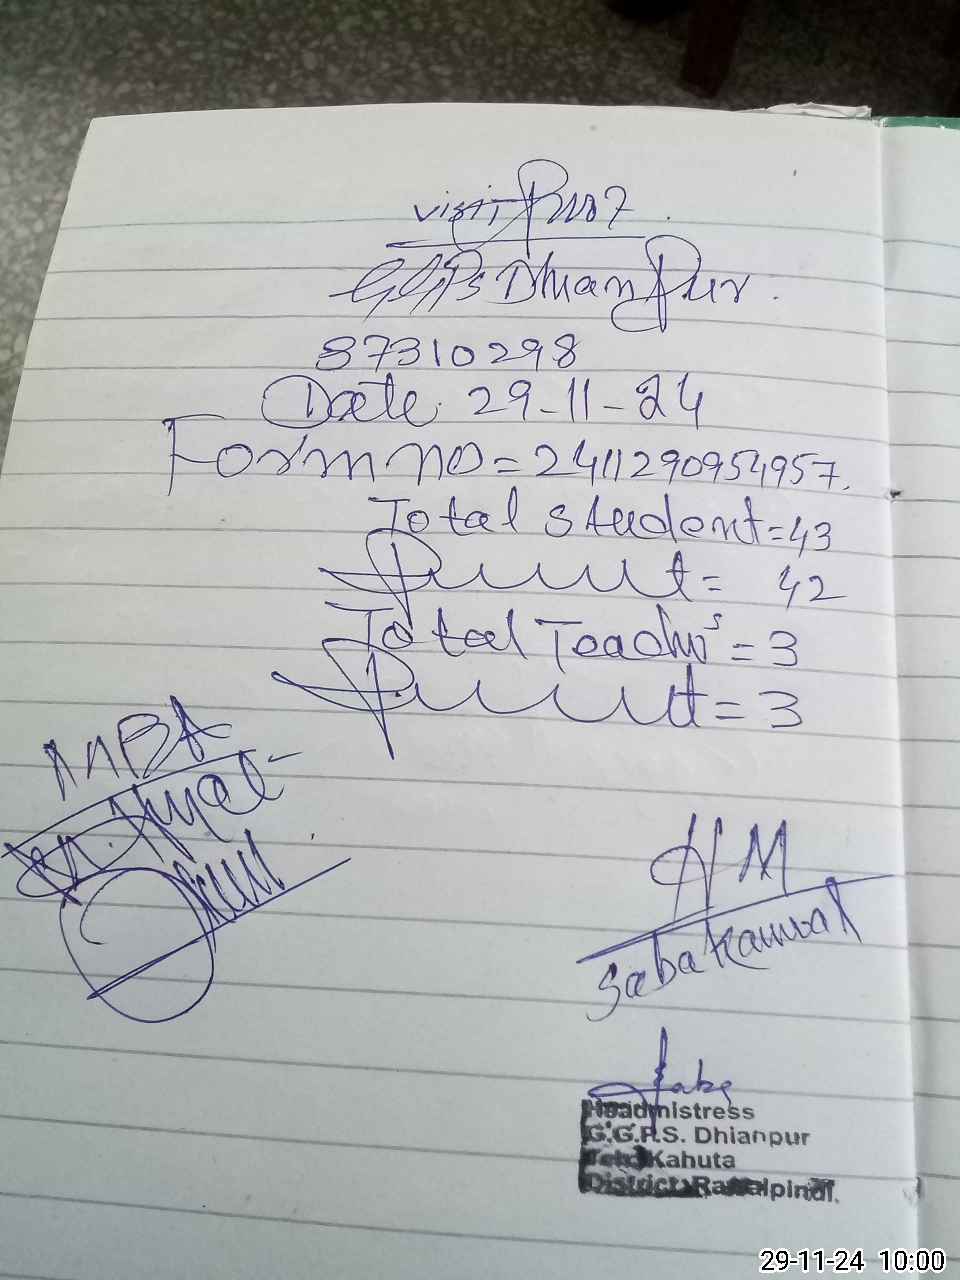 visit Proof
GGPS Dhianpur.
37310298
Date 29-11-24
Form no = 241129095 4957.
Total student = 43
Present = 42
Total Teachers = 3
Present = 3
MBA
HM
Saba Kanwal
Saba
Headmistress
G.G.P.S. Dhianpur
Teh: Kahuta
District: Rawalpindi.
29-11-24 10:00